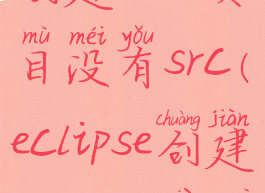 mù méi yǒu
目没有src(
chuàng jiàn
eclipse创建